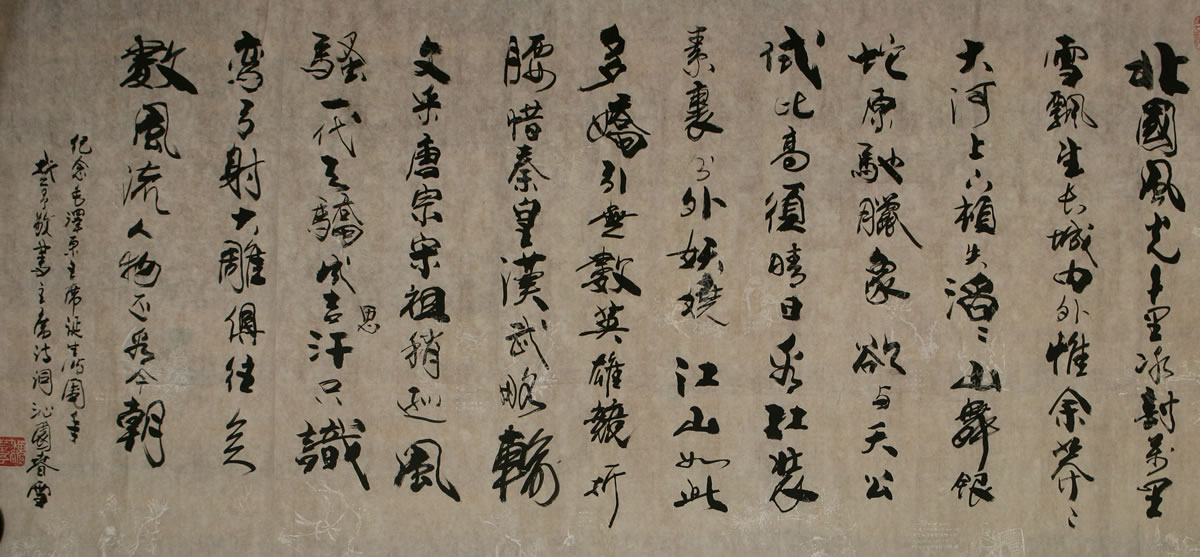 北國風光千里冰封萬里
雪飄望长城内外惟余莽〻
大河上下頓失滔〻山舞銀
蛇原馳臘象欲与天公
試比高須晴日看红裝
素裹分外妖嬈江山如此
多嬌引無數英雄競折
腰惜秦皇漢武略輸
文采唐宗宋祖稍遜風
騷一代天驕成吉思汗只識
彎弓射大雕俱往矣
數風流人物还看今朝
紀念毛澤東主席誕生周年
敬書主席詩詞沁園春雪